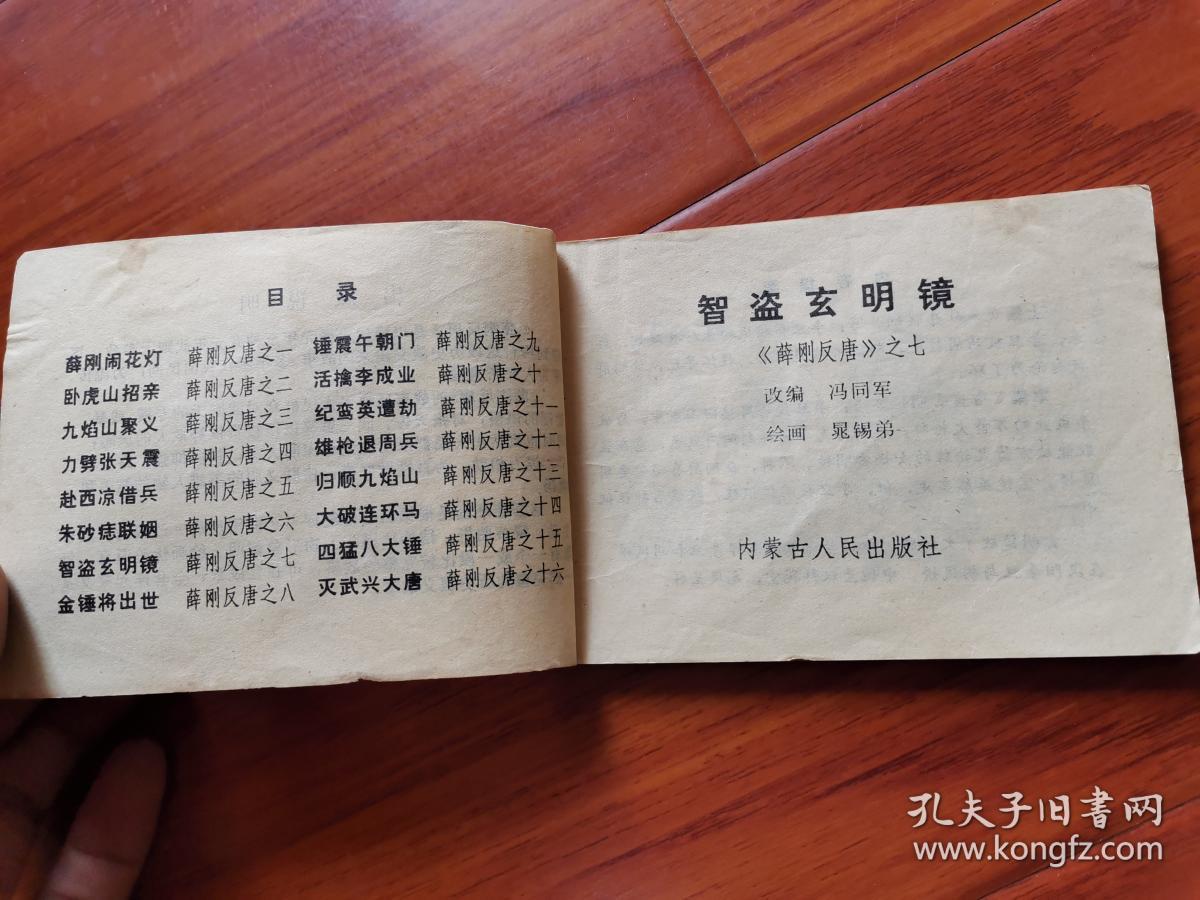 目 录
薛刚闹花灯 薛刚反唐之一
卧虎山招亲 薛刚反唐之二
九焰山聚义 薛刚反唐之三
力劈张天震 薛刚反唐之四
赴西凉借兵 薛刚反唐之五
朱砂痣联姻 薛刚反唐之六
智盗玄明镜 薛刚反唐之七
金锤将出世 薛刚反唐之八
锤震午朝门 薛刚反唐之九
活擒李成业 薛刚反唐之十
纪鸾英遭劫 薛刚反唐之十一
雄枪退周兵 薛刚反唐之十二
归顺九焰山 薛刚反唐之十三
大破连环马 薛刚反唐之十四
四猛八大锤 薛刚反唐之十五
灭武兴大唐 薛刚反唐之十六
智盗玄明镜
《薛刚反唐》之七
改编 冯同军
绘画 晁锡弟
内蒙古人民出版社
孔夫子旧书网
www.kongfz.com